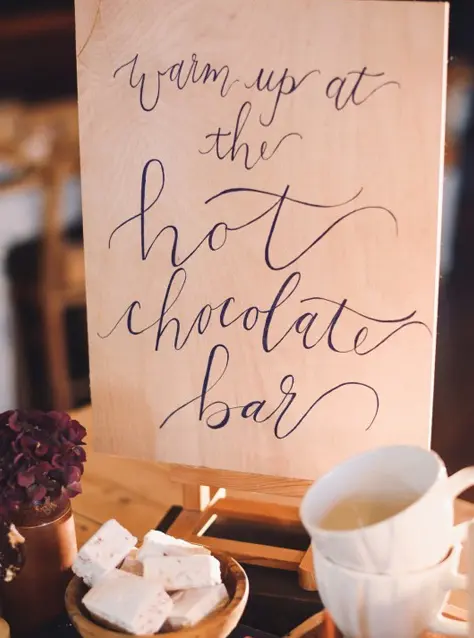 warm up at
the
hot
chocolate
bar